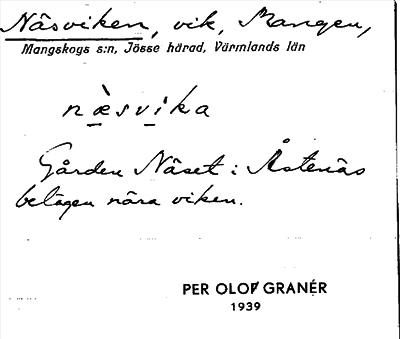 Näsviken, vik, Mangen,
Mangskogs s:n, Jösse härad, Värmlands län
næ̀svi̱ka
Gården Näset i Åstenäs
belägen nära viken.
PER OLOF GRANÉR
1939